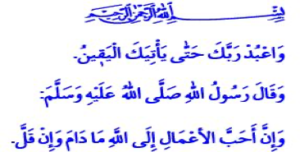 بِسْمِ اللّٰهِ الرَّحْمٰنِ الرَّحِيمِ
وَاعْبُدْ رَبَّكَ حَتّٰى يَأْتِيَكَ الْيَقٖينُ.
وَقَالَ رَسُولُ اللّٰهِ صَلَّى اللّٰهُ عَلَيْهِ وَسَلَّمَ:
وَإِنَّ أَحَبَّ الأعْمَالِ إِلَى اللَّهِ مَا دَامَ وَإِنْ قَلَّ.